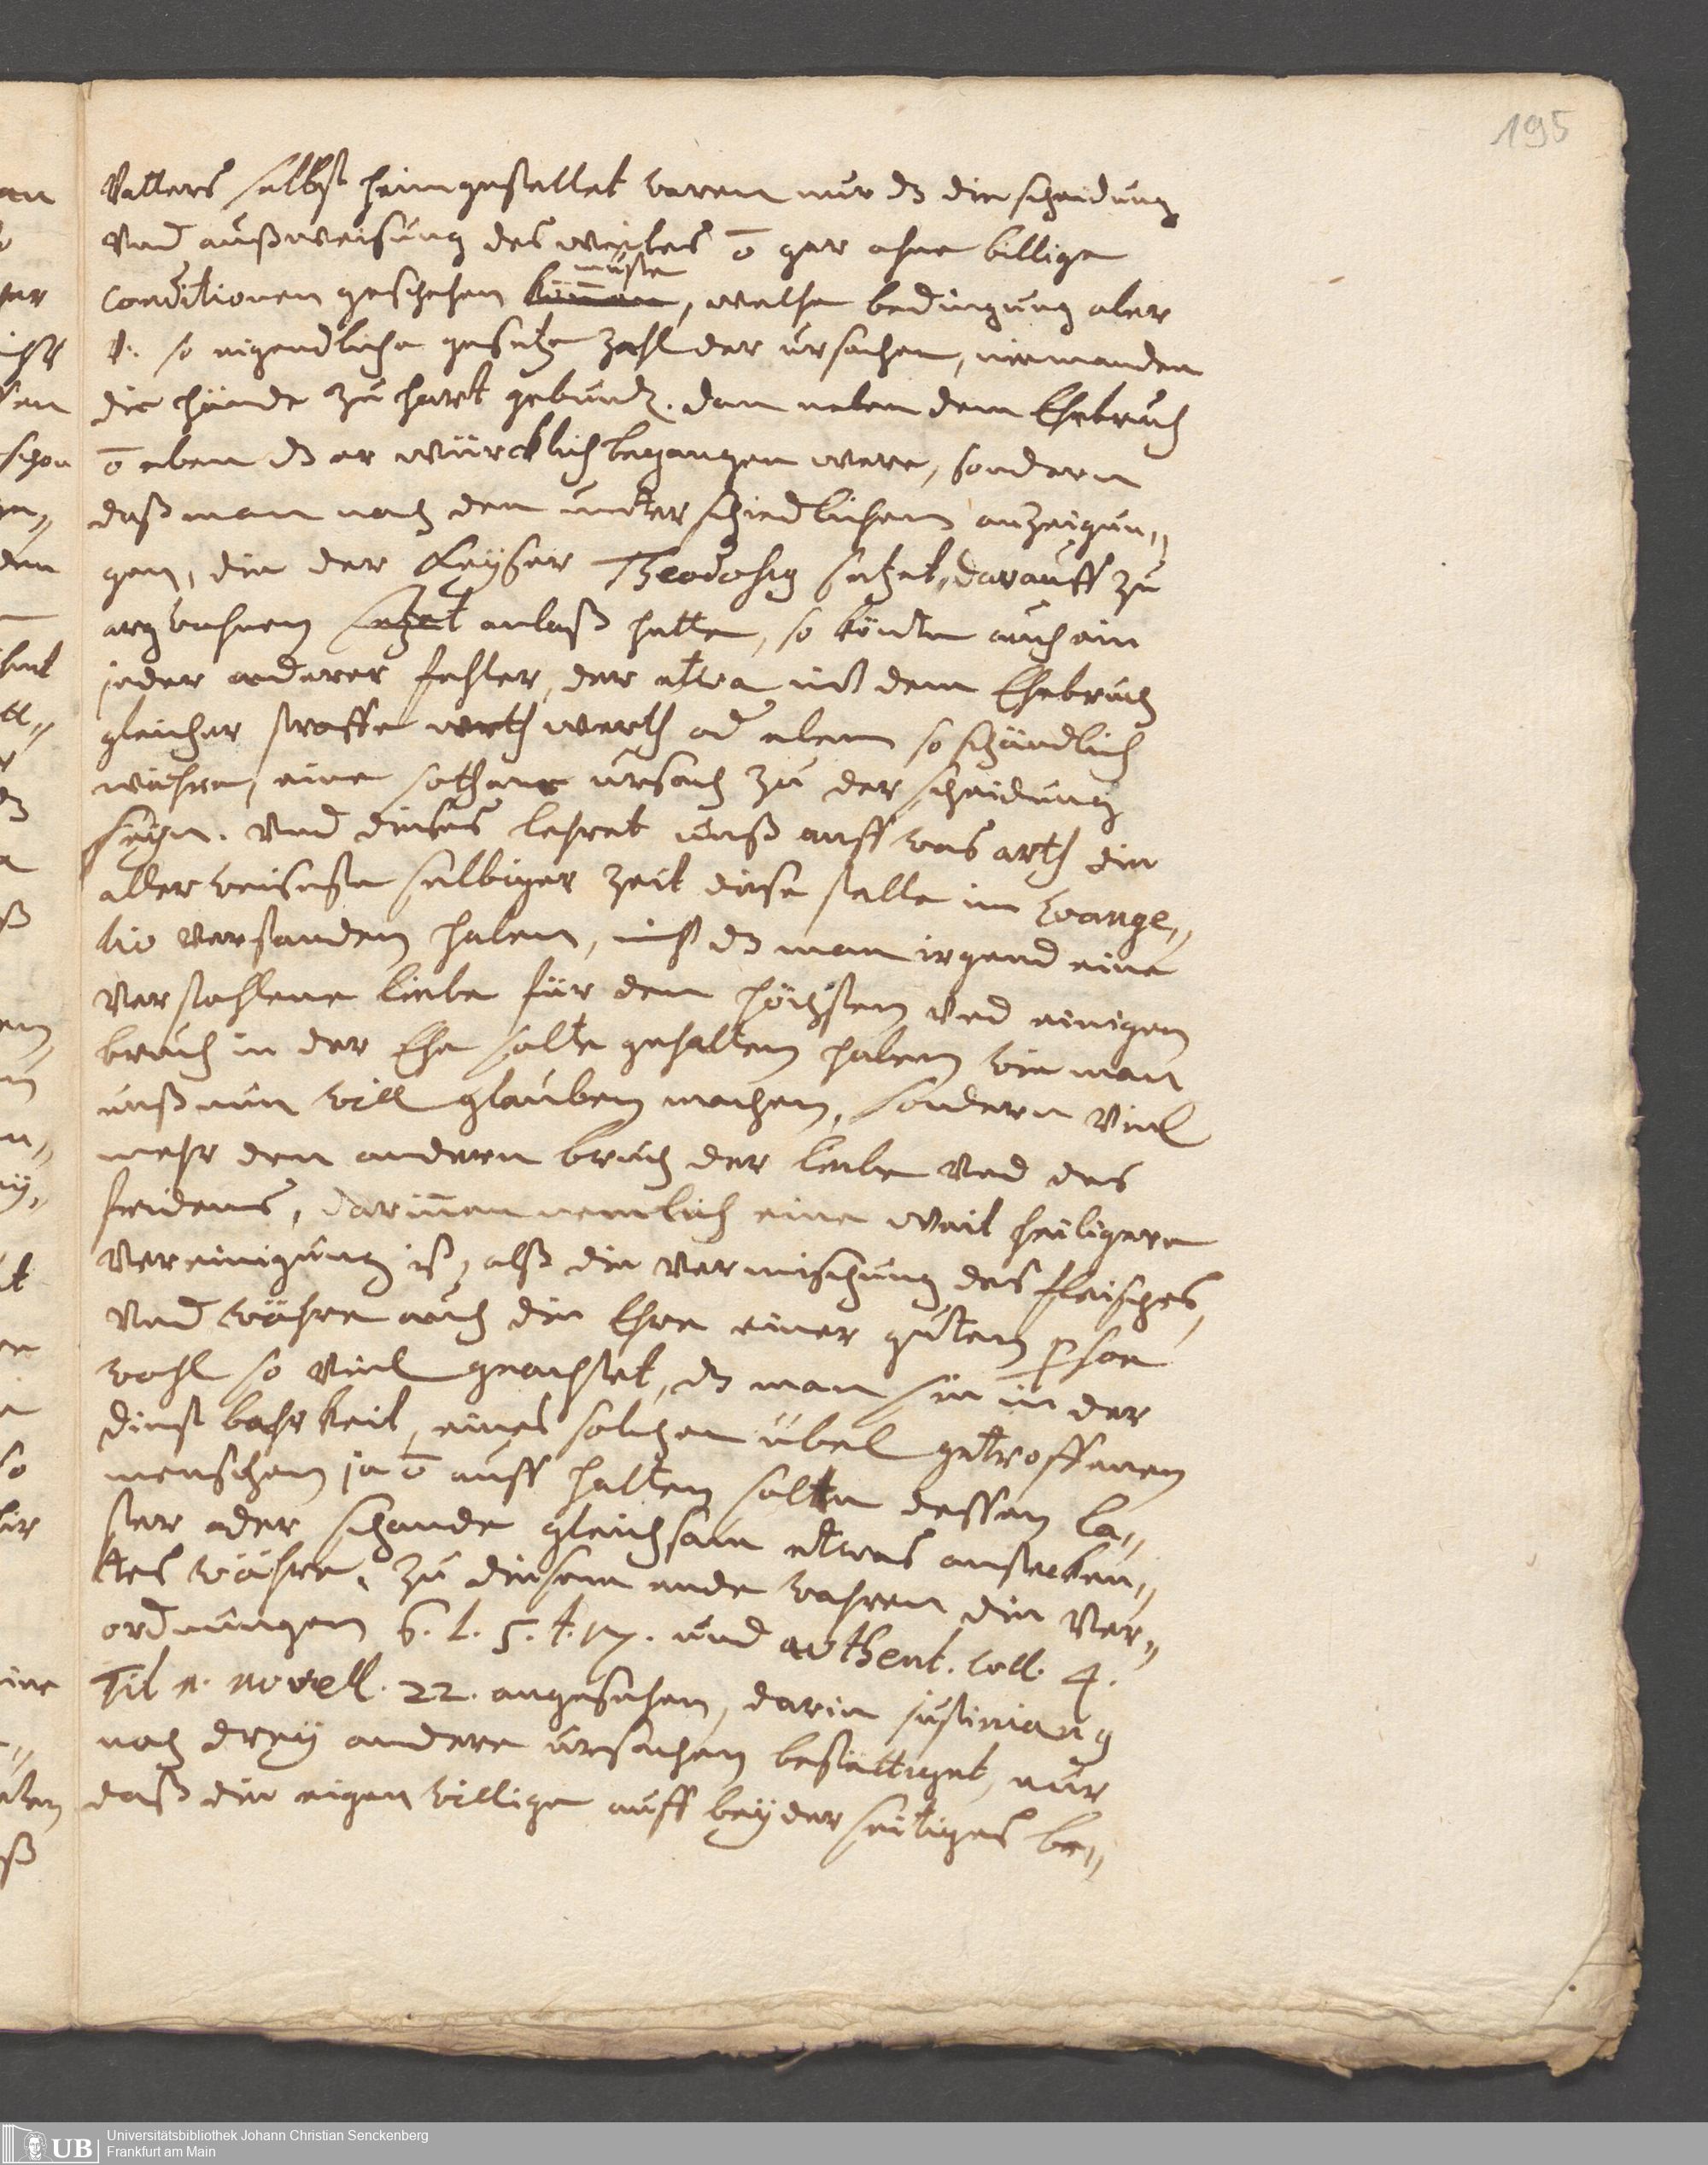 195
Vatters selbst heimgestellet weren nur dz die scheidung
Vnd außweisung des weibes ō gar ohne billige
conditionen geschehen können müste, welche bedingung aber
v. so eigendliche gesetze zahl der ursachen, niemanden
die hände zu hart gebund. dan neben dem Ehebruch
ō eben dz er würcklich begangen were, sondern
daß man nach den unterschiedlichen anzeigun„
gen, die der Keyser Theodosig setzet, darauff zu
argwohnen setzet anlaß hette, so könte auch ein
jeder anderer fehler, der etwa mit dem Ehebruch
gleicher straffe werth werth od eben so schändlich
währe, eine sothane ursach zu der scheidung
seyn. Vnd dieses lehret unß auff was arth die
aller weiseste selbiger zeit diese stelle im Evange„
lio verstanden haben, nicht dz man irgend eine
verstohlene liebe für den höchsten Vnd einigen
bruch in der Ehe solte gehalten haben wie man
unß nun will glauben machen, sondern Viel
mehr den andern bruch der liebe Vnd des
friedens, darinnen nemlich eine weit heiligere
Vereinigung ist, alß die Vermischung des fleisches,
Vnd währe auch die Ehre einer guten pson
wohl so Viel geachtet, dz man sie in der
dienstbahrkeit, eines solchen übel getroffenen
menschen ja ō auff halten solte dessen la„
ster oder schande gleichsam etwas anstecken„
des währe. Zu diesem ende wahren die Ver„
ordnungen C. l. 5. t. 17. und authent. coll. 4.
Tit 1. novell. 22. angesehen, darin justiniang
noch drey andere ursachen bestättiget, nur
daß die eigenwillige auff beyderseitiges be„
UB
Universitätsbibliothek Johann Christian Senckenberg
Frankfurt am Main